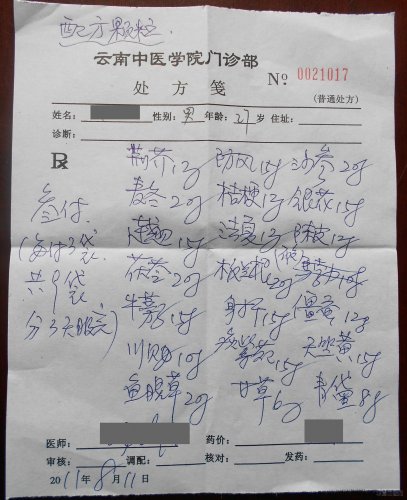 配方颗粒
云南中医学院门诊部
处方笺 No. 0021017
(普通处方)
姓名: 性别: 男 年龄: 27 岁 住址:
诊断:
R
荆芥12g 防风15g 沙参20g
麦冬20g 桔梗15g 银花15g
连翘15g 法夏15g 陈皮12g
茯苓20g 板兰根20g
牛蒡子15g 射干15g 僵蚕12g
川贝10g 15g 天竺黄15g
鱼腥草20g 甘草6g 青黛8g
叁付
(每付3袋
共9袋
分3天服完)
医师: 药价:
审核: 调配: 核对: 发药:
2011年8月11日